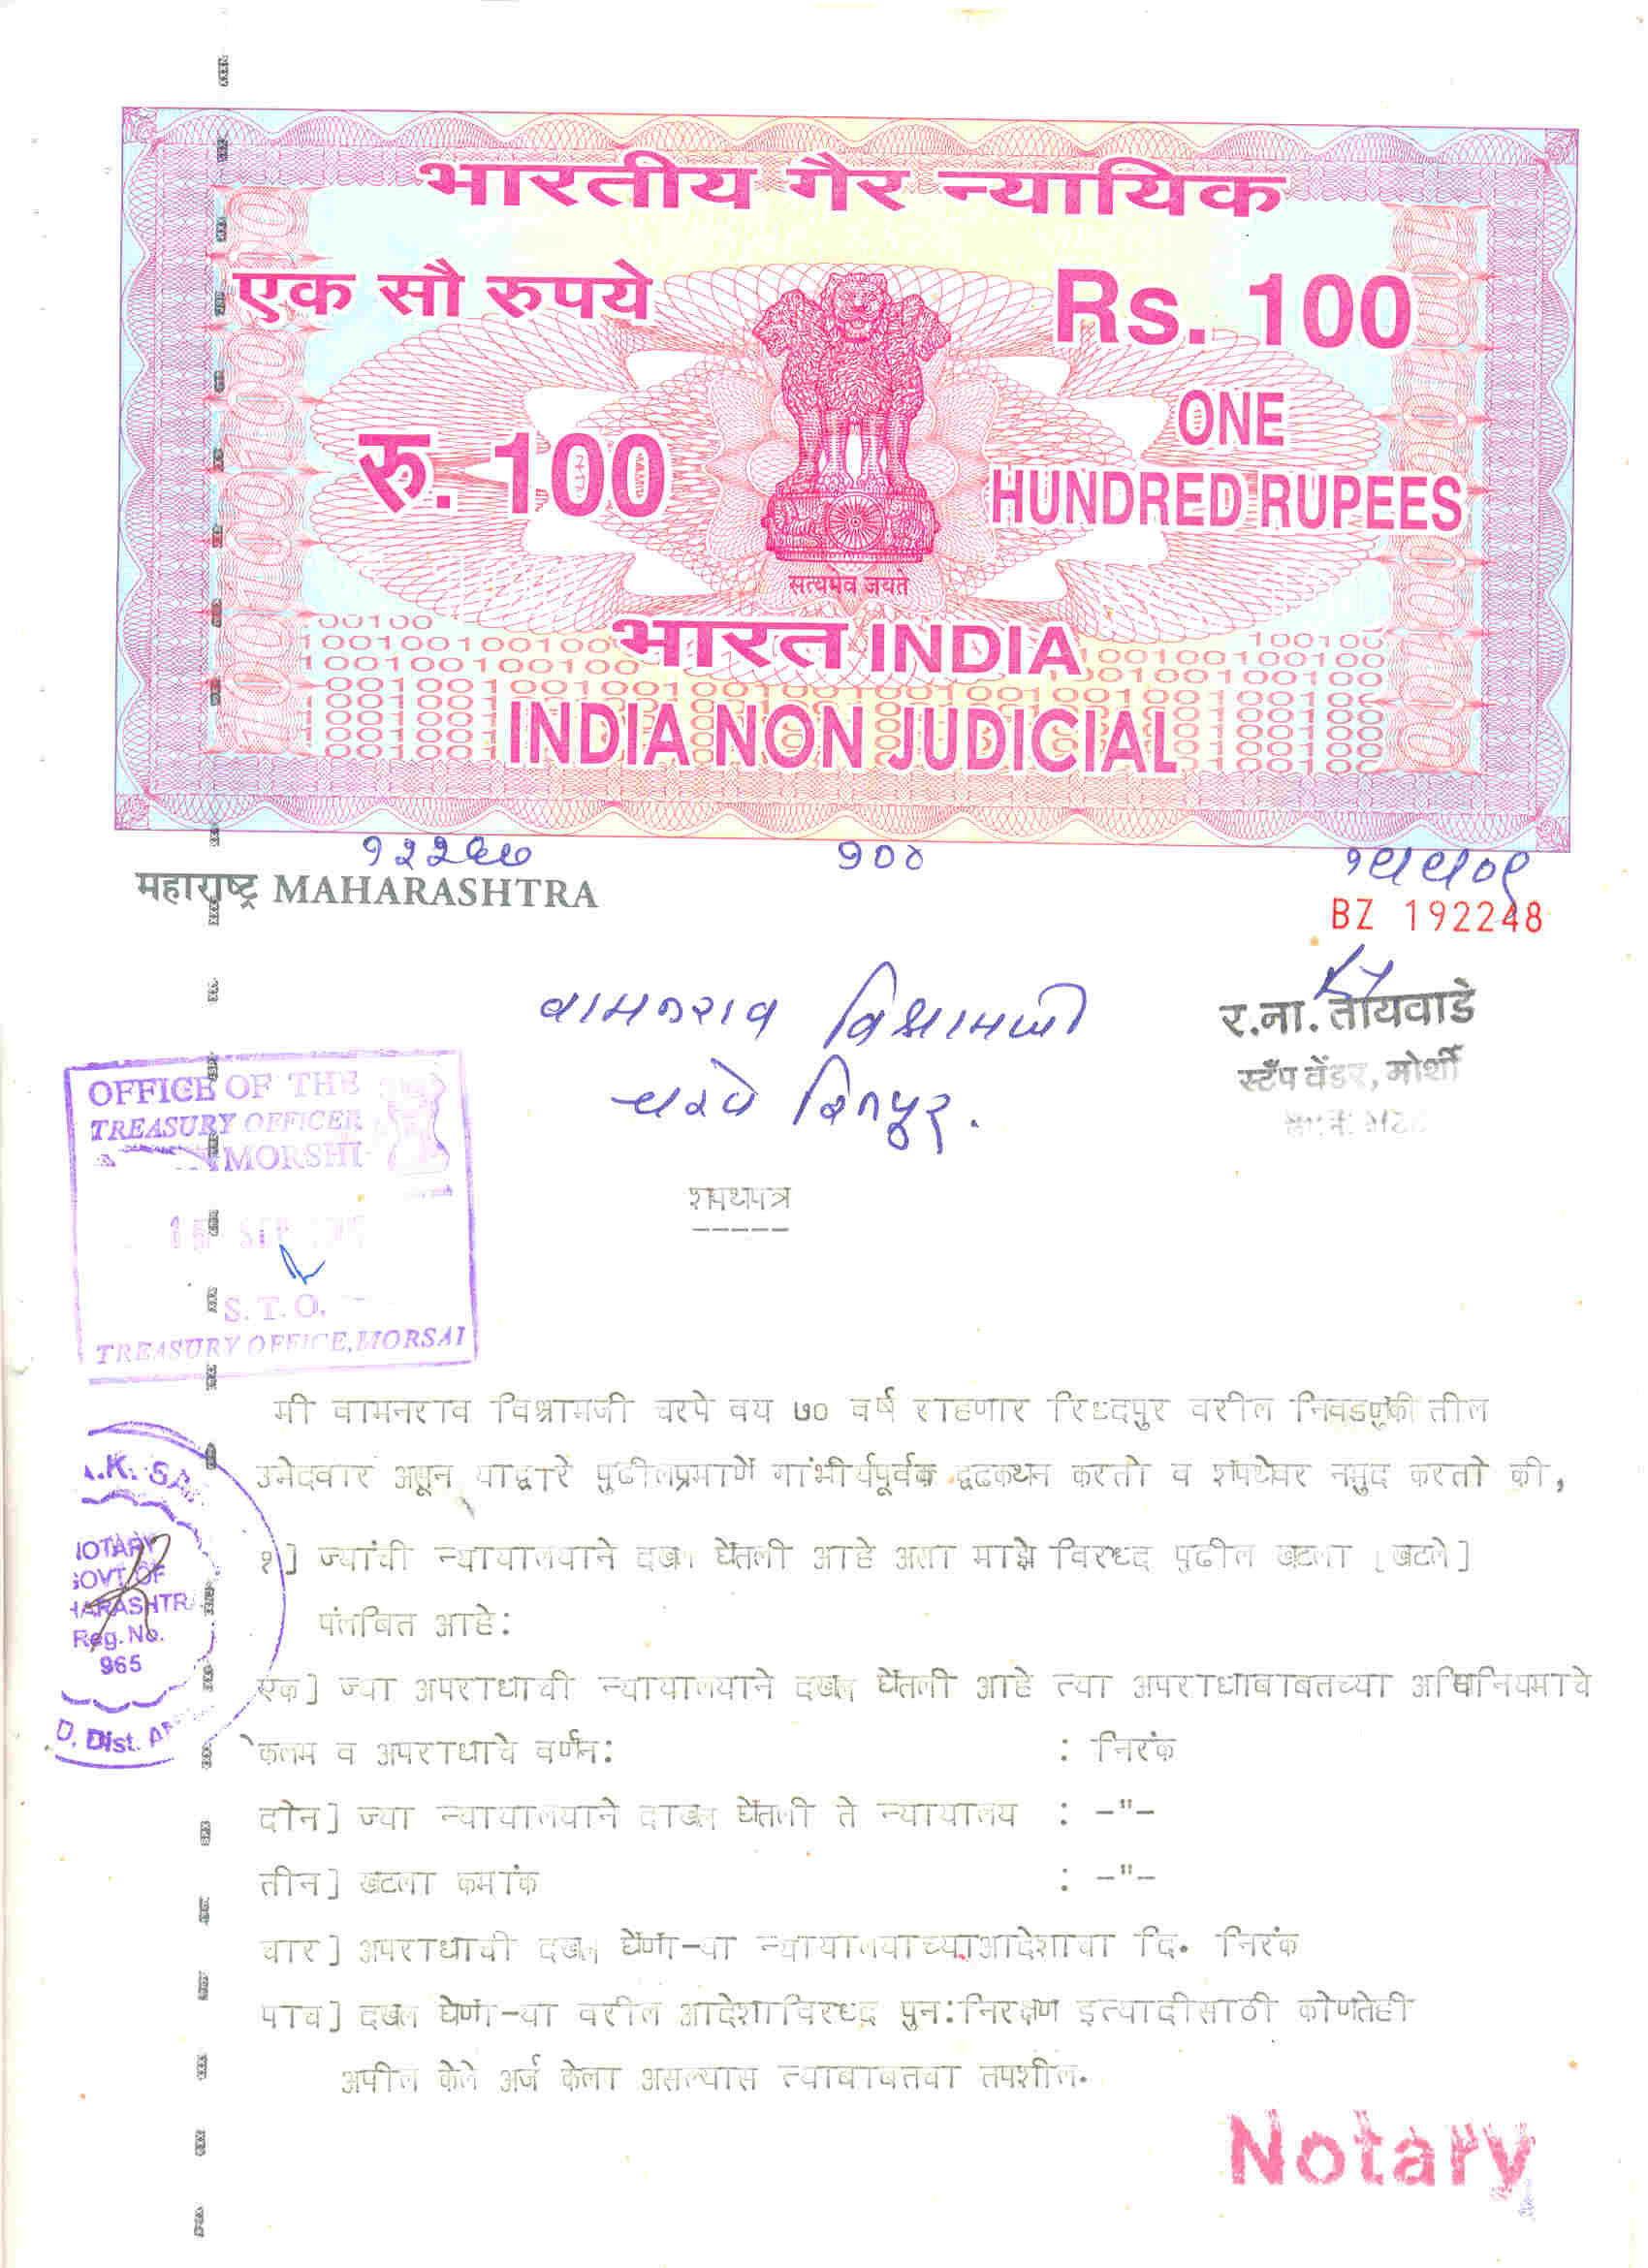 भारतीय गैर न्यायिक
एक सौ रुपये
Rs. 100
रु. 100
ONE
HUNDRED RUPEES
सत्यमेव जयते
भारत INDIA
INDIA NON JUDICIAL
१००
महाराष्ट्र MAHARASHTRA
BZ 192248
वामनराव विश्रामजी
र.ना. तायवाडे
स्टँप वेंडर, मोर्शी
OFFICE OF THE
TREASURY OFFICER
MORSHI
S. T. O.
TREASURY OFFICE, MORSAI
शपथपत्र
मी वामनराव विश्रामजी चरपे वय ७० वर्ष राहणार रिध्दपुर वरील निवडणुकी तील
उमेदवार असून याद्वारे पुढीलप्रमाणे गांभीर्यपूर्वक दृढकथन करतो व शपथेवर नमुद करतो की,
१] ज्यांची न्यायालयाने दखल घेतली आहे असा माझे विरध्द पुढील खटला [खटले]
पंलबित आहे:
एक] ज्या अपराधाची न्यायालयाने दखल घेतली आहे त्या अपराधाबाबतच्या अधिनियमाचे
कलम व अपराधाचे वर्णन: : निरंक
दोन] ज्या न्यायालयाने दाखल घेतली ते न्यायालय : -"-
तीन] खटला कमांक : -"-
चार] अपराधाची दखल घेणा-या न्यायालयाच्याआदेशाचा दि. निरंक
पाच] दखल घेणा-या वरील आदेशाविरध्द पुन:निरक्षण इत्यादीसाठी कोणतेही
अपील केले अर्ज केला असल्यास त्याबाबतचा तपशील.
.K. SA
NOTARY
GOVT. OF
HARASHTRA
Reg. No.
965
D. Dist. A
Notary